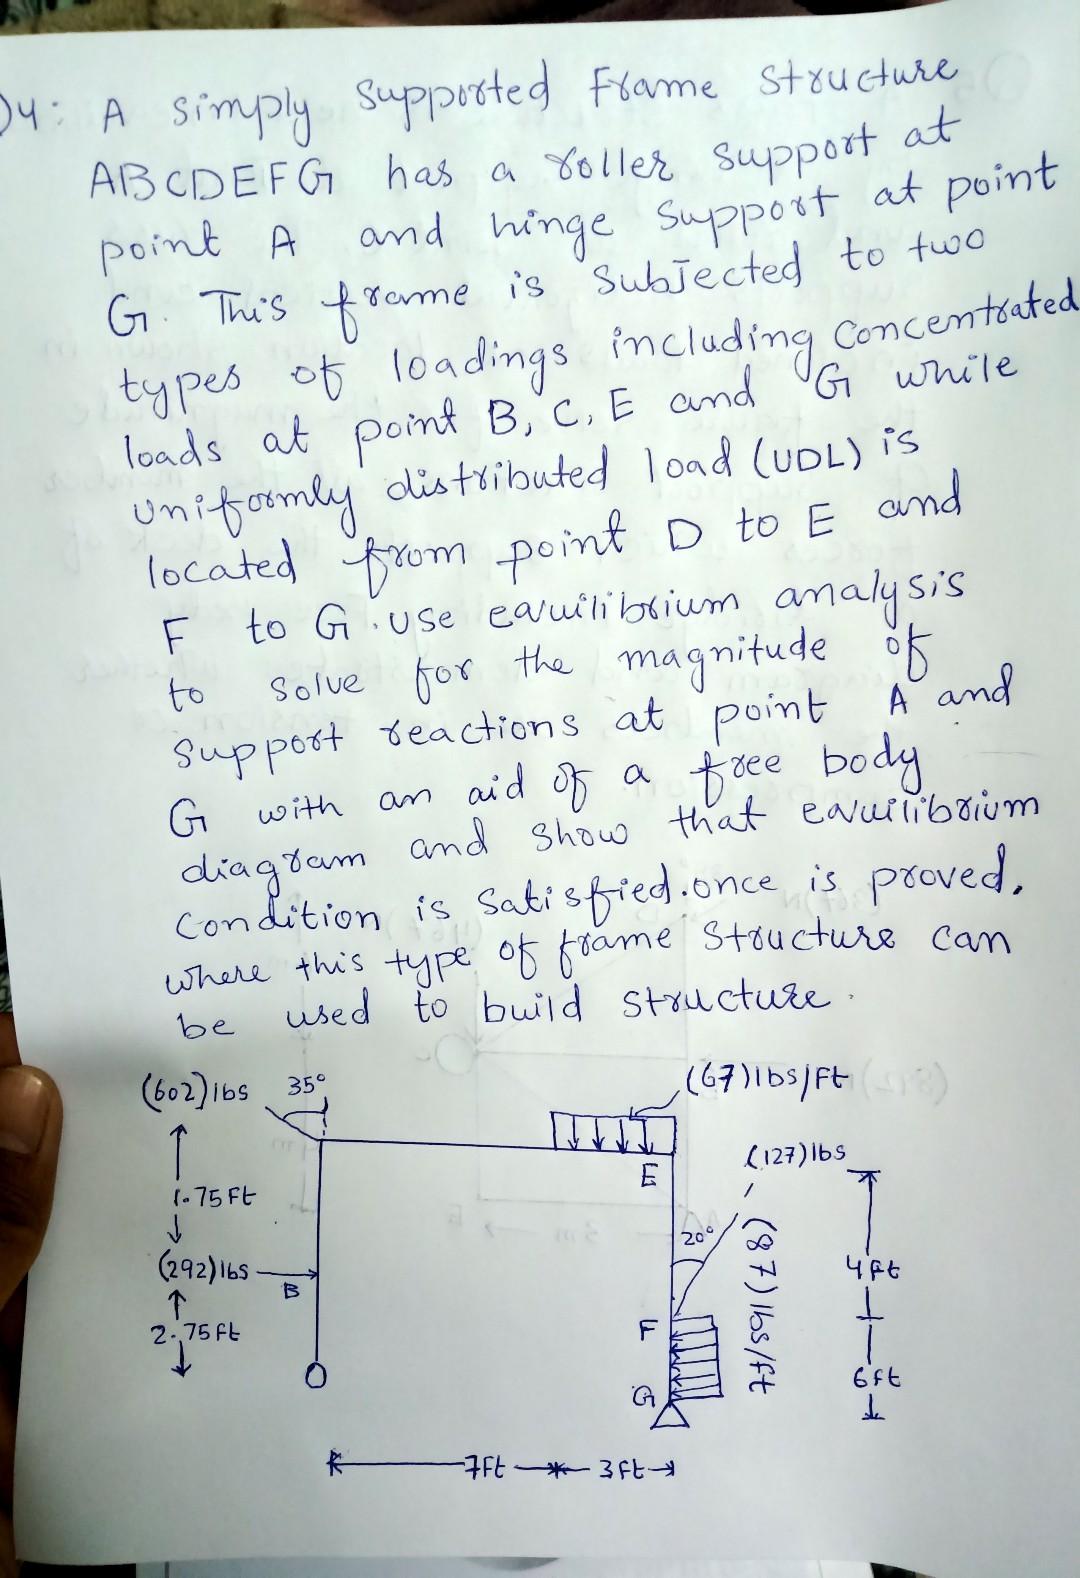 Q4: A simply supported frame structure
ABCDEFG has a roller support at
point A and hinge support at point
G. This frame is subjected to two
types of loadings including concentrated
loads at point B, C, E and G while
uniformly distributed load (UDL) is
located from point D to E and
F to G. use equilibrium analysis
to solve for the magnitude of
support reactions at point A and
G with an aid of a free body
diagram and show that equilibrium
condition is satisfied. once is proved.
where this type of frame structure can
be used to build structure.
(602) lbs 35° (67) lbs/ft
E (127) lbs
1.75 Ft
20° (87) lbs/ft
(292) lbs B 4 Ft
2.75 ft F
G 6 ft
7 ft 3 ft